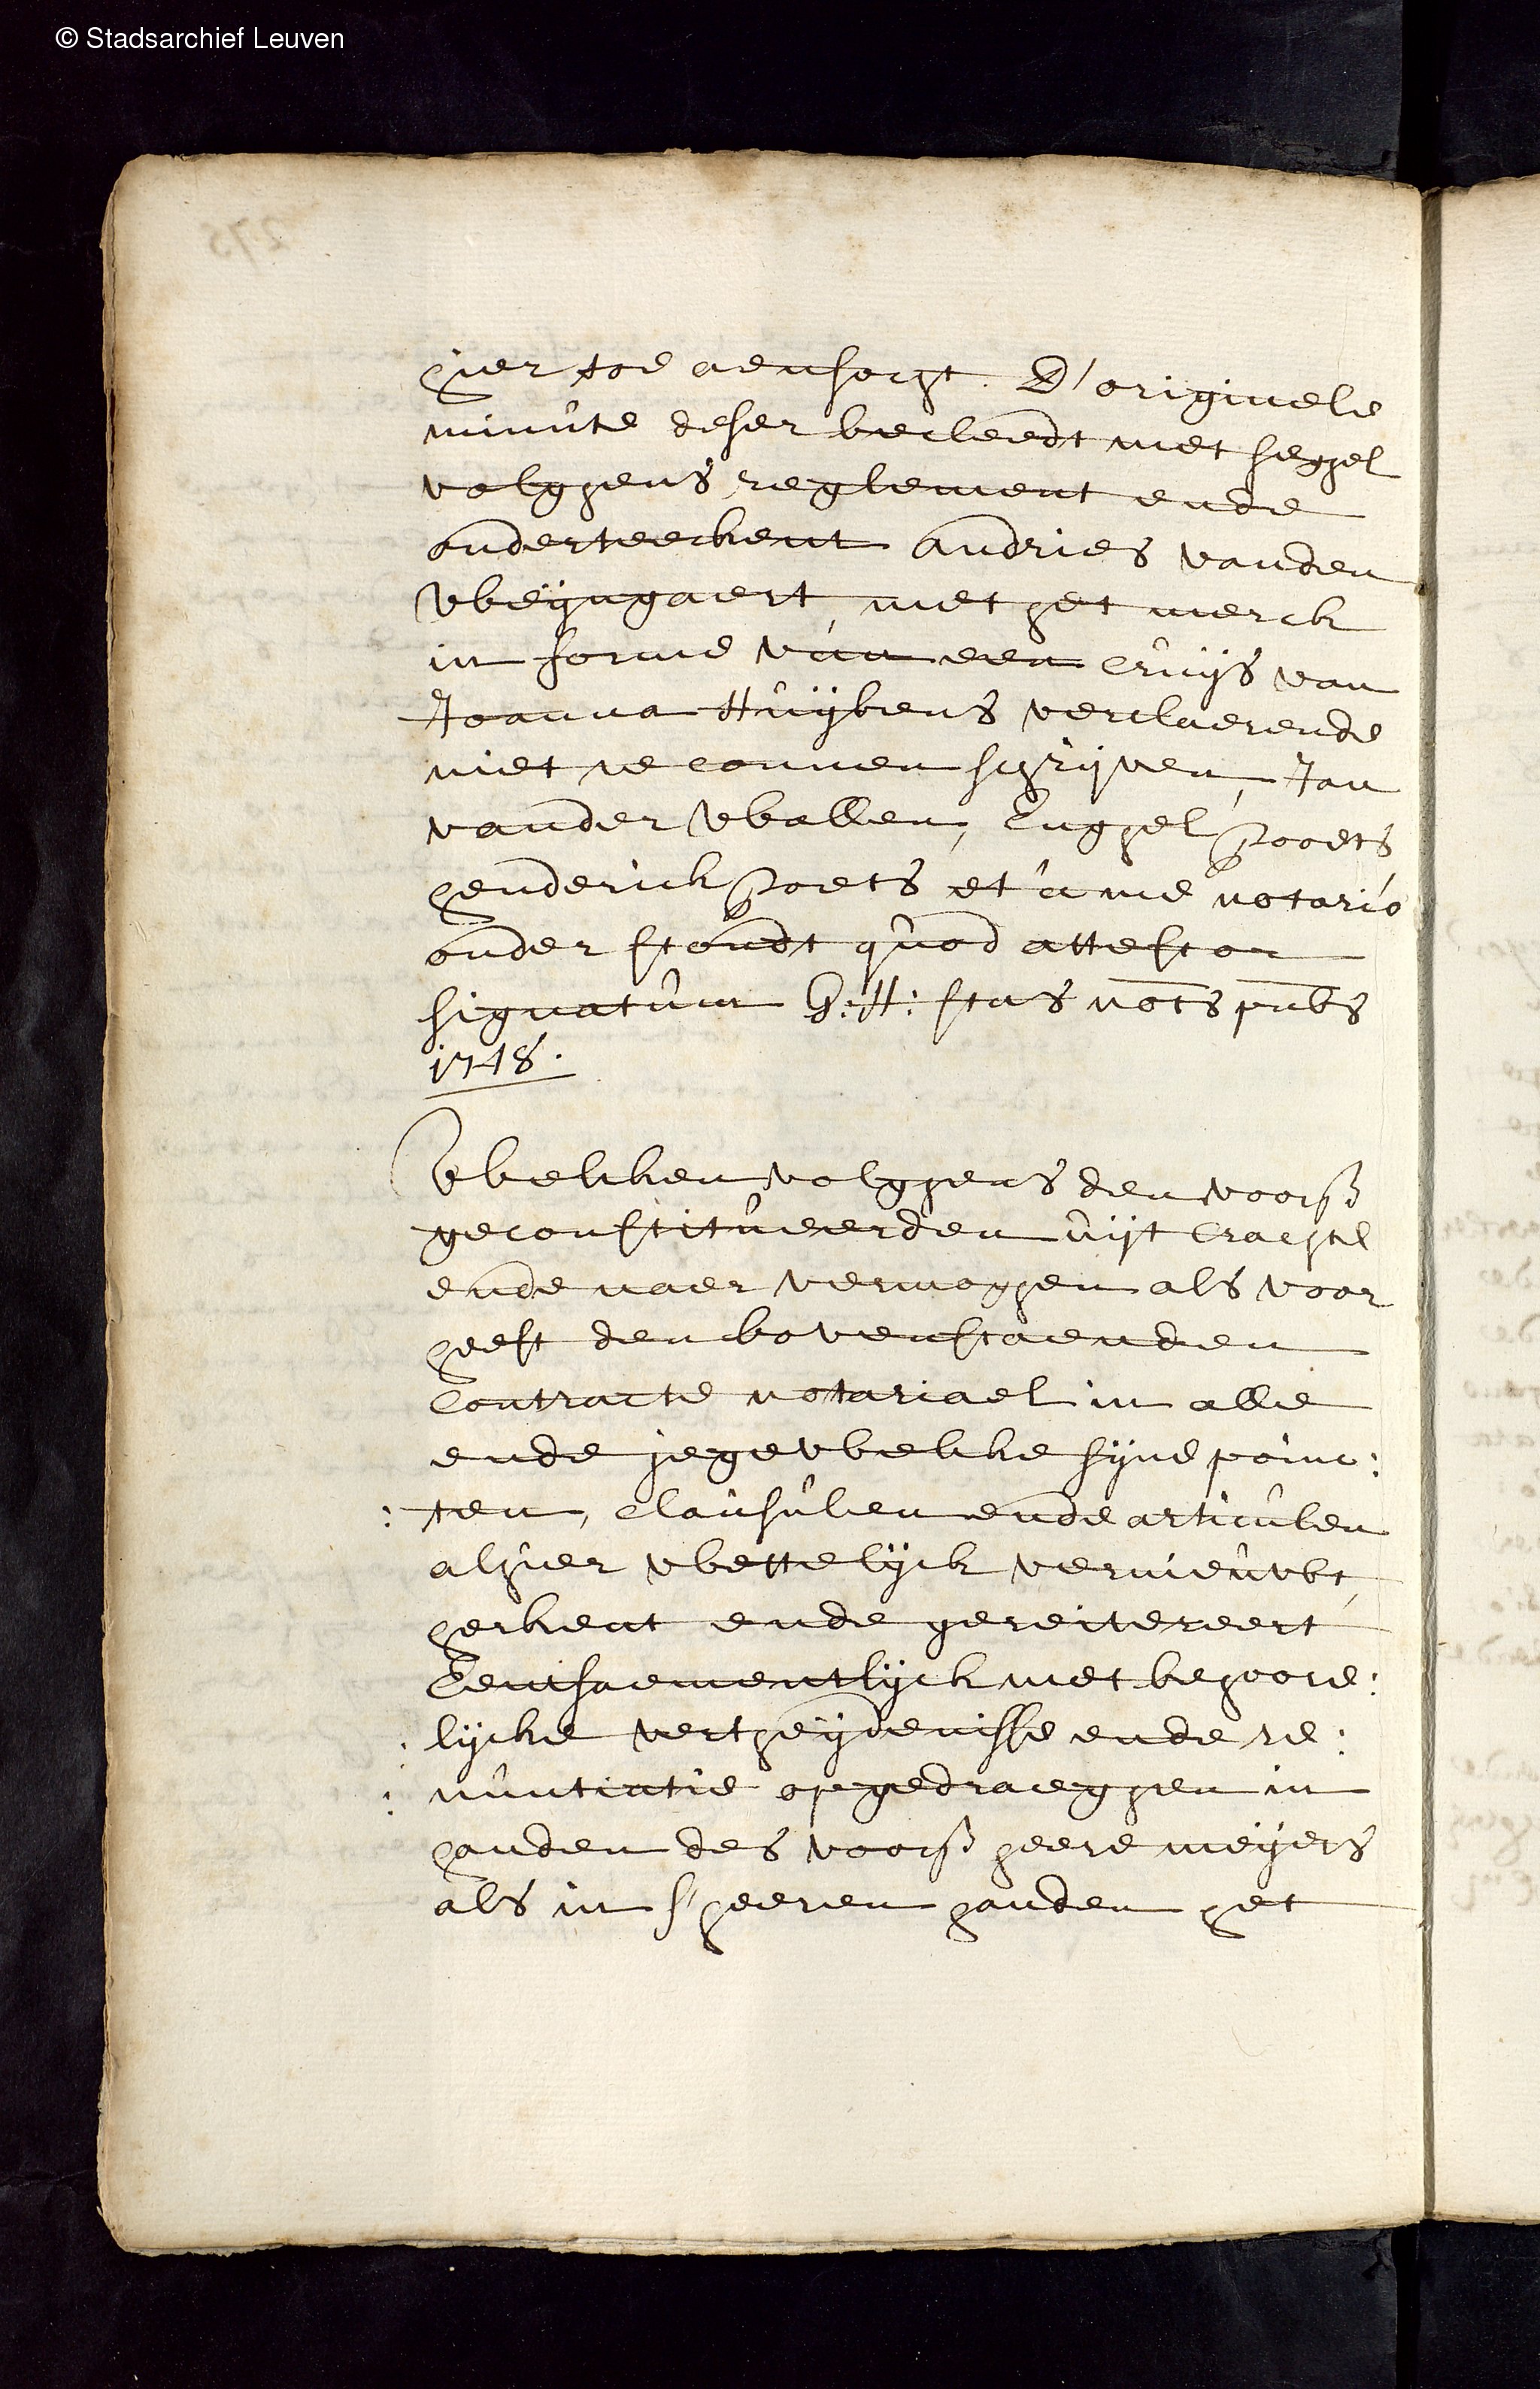 © Stadsarchief Leuven
hier toe aensocht. D'originele
minute deser becleedt met seghel
volghens reglement ende
onderteeckent Andries vanden
Wheyngaert, met het merck
in forme van een cruijs van
Joanna Huijbens verclaerende
niet te connen schrijven, Jan
vander Wallen, Enghel Poets
Henderick Poets et a me notario
onder stondt quod attestor
signatum G: H: Stas nots pubs
1748.
Welcken volghens den voors
geconstitueerden uijt crachte
ende naer vermoghen als voor
heeft den bovenstaenden
contracte notariael in alle
ende jegewelcke sijne poinc:
: ten, clausulen ende articulen
alhier wettelijck vernieuwt,
herkent ende gereitereert
Eensaementlijck met behoore:
: lijcke vertheijdenisse ende re:
: nuntiatie opgedraeghen in
handen des voors heere meijers
als in s'heeren handen het